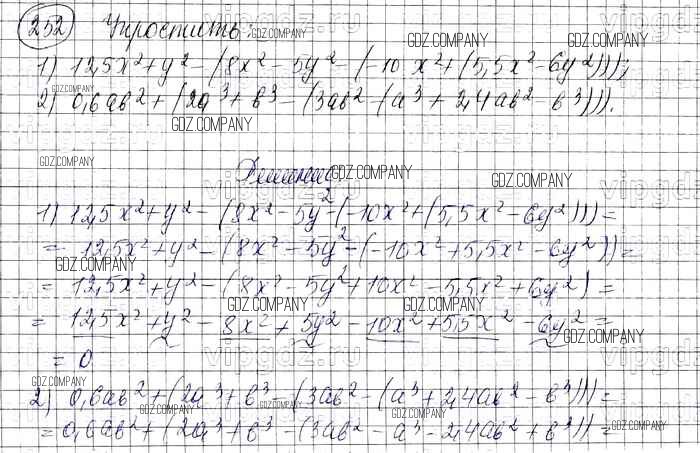 252) Упростить:
1) 12,5x² + y² - (8x² - 5y² - (-10x² + (5,5x² - 6y²)));
2) 0,6ab² + (2a³ + b³ - (3ab² - (a³ + 2,4ab² - b³))).
Решение:
1) 12,5x² + y² - (8x² - 5y² - (-10x² + (5,5x² - 6y²))) =
= 12,5x² + y² - (8x² - 5y² - (-10x² + 5,5x² - 6y²)) =
= 12,5x² + y² - (8x² - 5y² + 10x² - 5,5x² + 6y²) =
= 12,5x² + y² - 8x² + 5y² - 10x² + 5,5x² - 6y² =
= 0
2) 0,6ab² + (2a³ + b³ - (3ab² - (a³ + 2,4ab² - b³))) =
= 0,6ab² + (2a³ + b³ - (3ab² - a³ - 2,4ab² + b³)) =
GDZ.COMPANY
vipgdz.ru